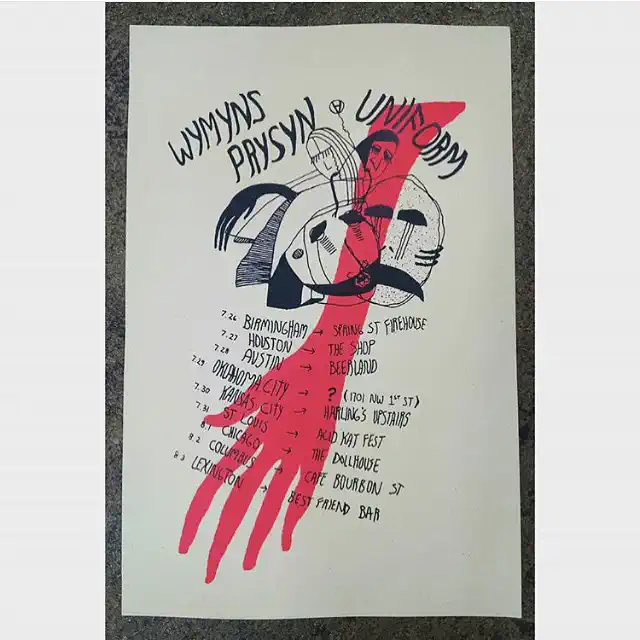 WYMYNS
PRYSYN
UNIFORM
7.26 BIRMINGHAM → SPRING ST FIREHOUSE
7.27 HOUSTON → THE SHOP
7.28 AUSTIN → BEERLAND
7.29 OKLAHOMA CITY → ? (1701 NW 1ST ST)
7.30 KANSAS CITY → HARLING'S UPSTAIRS
7.31 ST LOUIS → ACID KAT FEST
8.1 CHICAGO → THE DOLLHOUSE
8.2 COLUMBUS → CAFE BOURBON ST
8.3 LEXINGTON → BEST FRIEND BAR